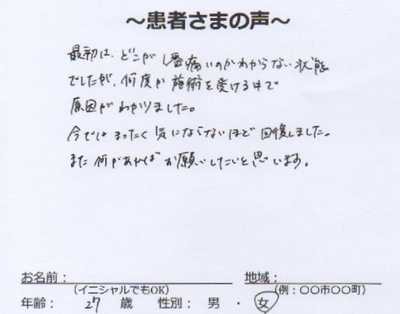 ～患者さまの声～
最初は、どこが1番痛いのかわからない状態
でしたが、何度か施術を受ける中で
原因がわかりました。
今ではまったく気にならないほど回復しました。
また何かあればお願いしたいと思います。
お名前： 地域：
（イニシャルでもOK） （例：〇〇市〇〇町）
年齢： 27 歳 性別： 男 ・ 女